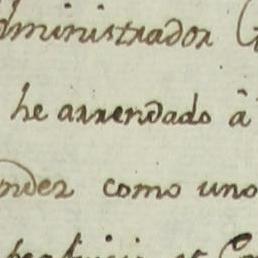 dministrador
he arrendado â
ndez como uno